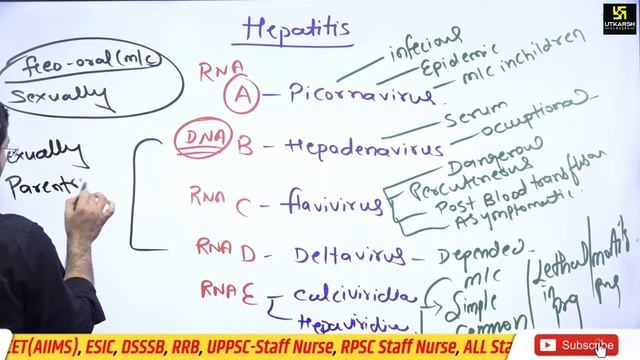 Hepatitis
UTKARSH
CLASSES
feco-oral (m/c)
Sexually
exually
Parent
RNA
A - Picornavirus
infecious
Epidemic
m/c in children
DNA B - Hepadenavirus
Serum
occuptional
RNA C - flavivirus
Dangerous
Percuteneous
Post Blood transfusion
Asymptomatic
RNA D - Deltavirus - Depended
RNA E
Calciviridia
Hepaviridia
m/c
Simple
common
Lethal
in
prg
EET(AIIMS), ESIC, DSSSB, RRB, UPPSC-Staff Nurse, RPSC Staff Nurse, ALL Sta
Subscribe